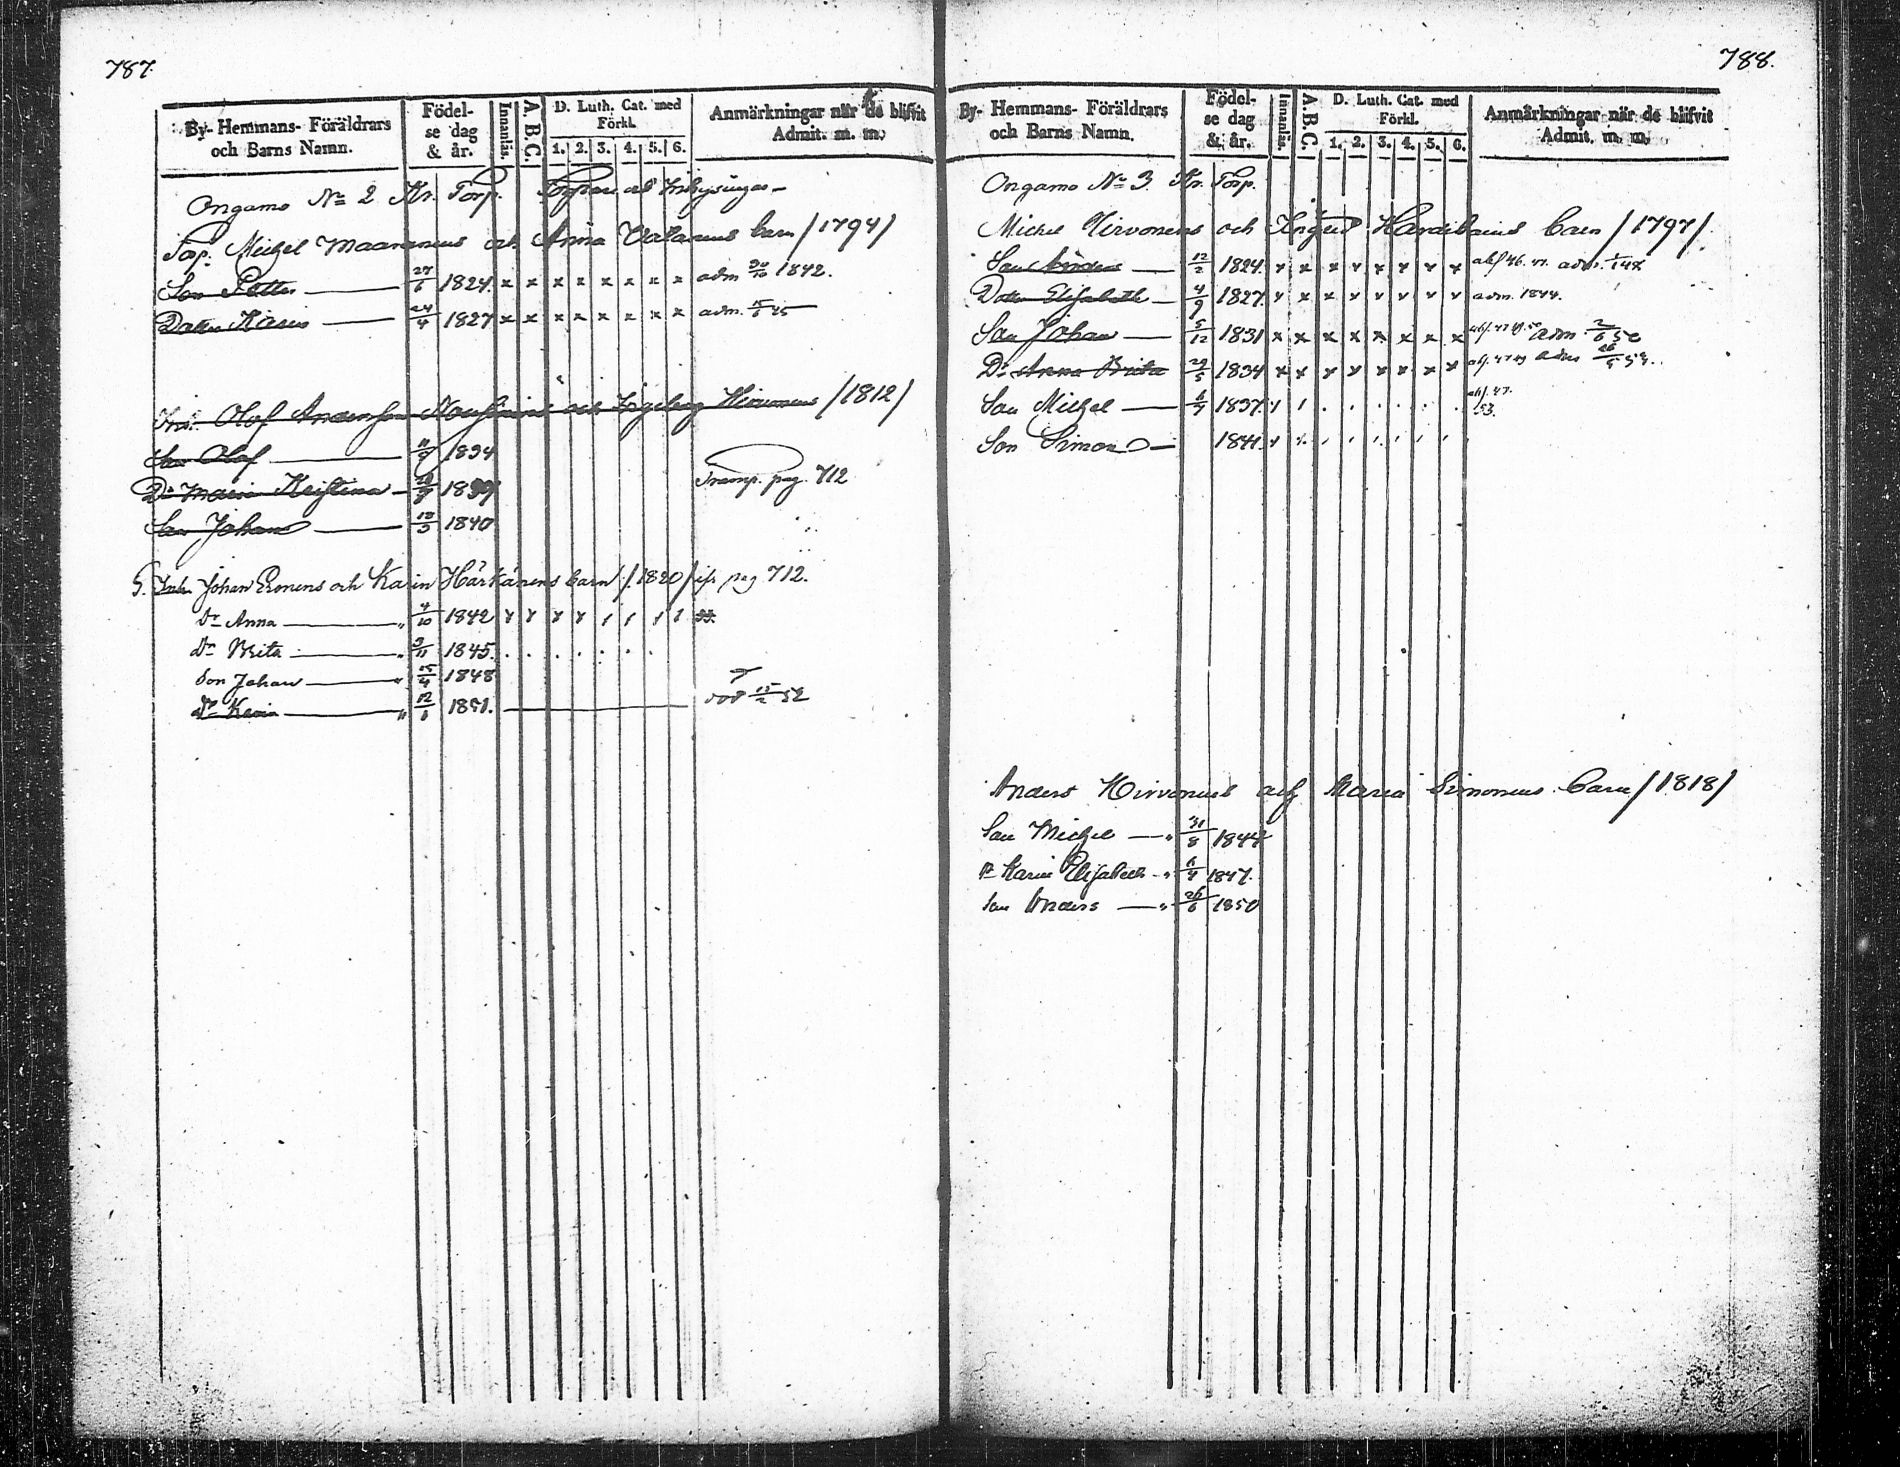 787.
By- Hemmans- Föräldrars och Barns Namn.
Födel-se dag & år.
Innanläs.
A. B. C.
D. Luth. Cat. med Förkl.
1. 2. 3. 4. 5. 6.
Anmärkningar när de blifvit Admit. m. m.
Ongamo No 2 Kr. Torp.
Torp. Michel Maaranens och Anna barn /1794/
Son Petter 27/6 1824. x x x x x x x x adm 1842.
Dotter Karin 24/4 1827 x x x x x x x x adm. 15/6 45
Inh. Olof Andersson och Ingeborg Hirvonens /1812/
Son Olof 1834
Dr Maria Kristina Transp. pag. 712
Son Johan 13/3 1840
5. Inh. Johan Eronens och Karin Härkänens barn /1820/ pag 712.
Dr Anna 4/10 1842 53.
Dr Brita 1845.
Son Johan 15/4 1848
Dr Karin 12/1 1851. död 15/2 52
788.
By- Hemmans- Föräldrars och Barns Namn.
Födel-se dag & år.
Innanläs.
A. B. C.
D. Luth. Cat. med Förkl.
1. 2. 3. 4. 5. 6.
Anmärkningar när de blifvit Admit. m. m.
Ongamo No 3. Kr. Torp.
Michel Hirvonens och Ingrid barn /1797/.
Son Anders 12/2 1824. x x x x x x x x abs 46. 47. adm.
Dotter Elisabeth 4/9 1827. x x x x x x x x adm. 1844.
Son Johan 5/12 1831 x x x x x x x x adm. 2/6 50
Dr Anna Brita 29/5 1834 x x x x x x x x abs. 47 49 adm
Son Michel 1837. abs. 47. 53.
Son Simon 1841.
Anders Hirvonens och Maria Simonens barn /1818/
Son Michel 31/8 1844
Dr Karin Elisabeth 1847.
Son Anders 26/6 1850